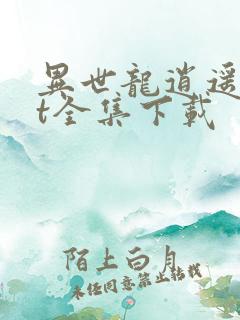 異世龍逍遥
t全集下載
陌上白月
未经同意禁止转载